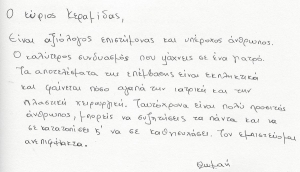 Ο κύριος Κεραμίδας,
Είναι αξιόλογος επιστήμονας και υπέροχος άνθρωπος.
Ο καλύτερος συνδυασμός που ψάχνεις σε ένα γιατρό.
Τα αποτελέσματα της επέμβασης είναι εκπληκτικά
και φαίνεται πόσο αγαπά την ιατρική και την
πλαστική χειρουργική. Ταυτόχρονα είναι πολύ προσιτός
άνθρωπος, μπορείς να συζητήσεις τα πάντα και να
σε κατατοπίσει ή να σε καθησυχάσει. Τον εμπιστεύομαι
ανεπιφύλακτα.
Θωμαή